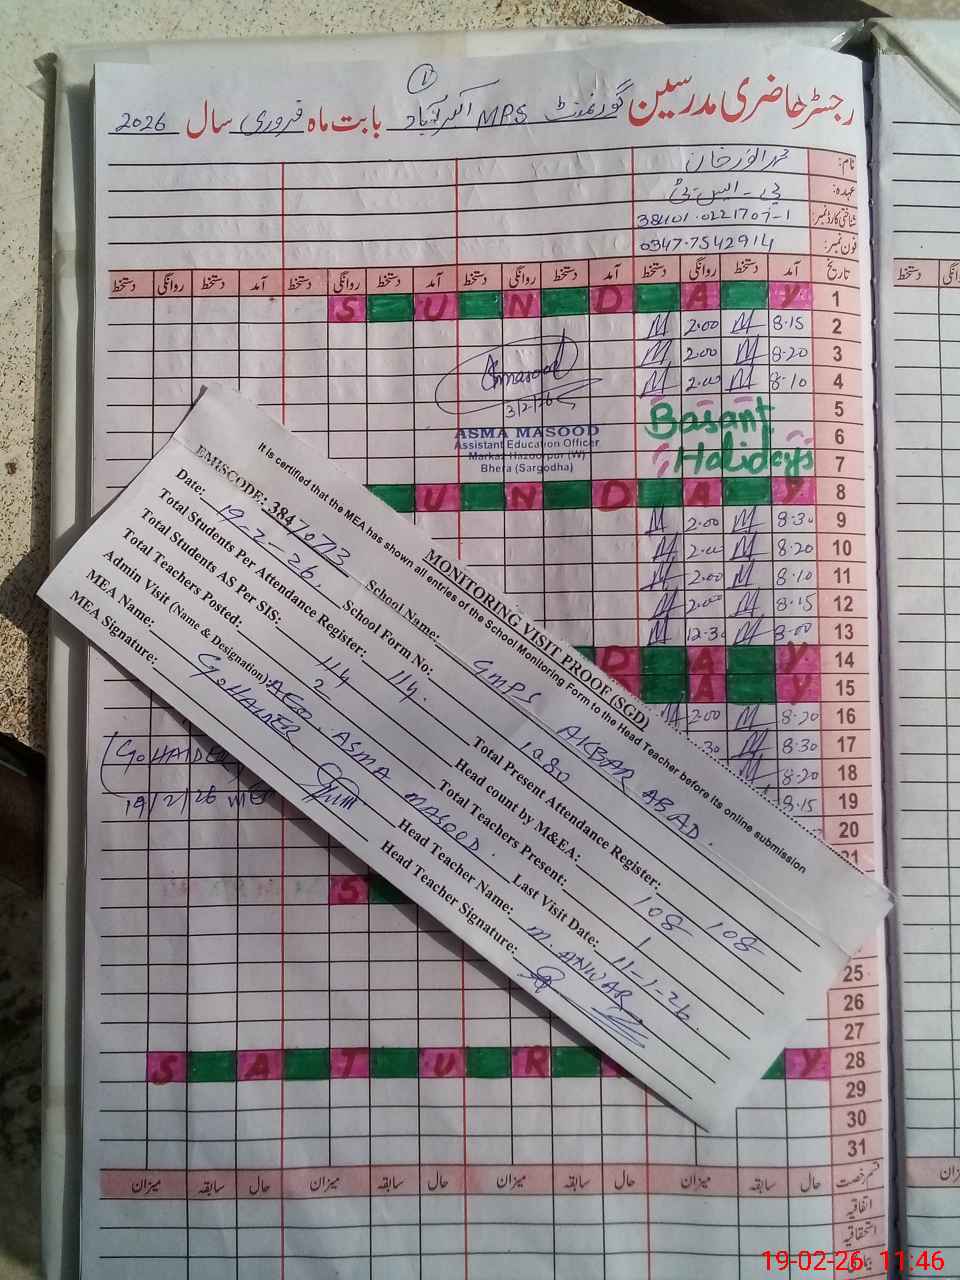 1
رجسٹر حاضری مدرسین گورنمنٹ MPS اکبر آباد بابت ماہ فروری سال 2026
نام:
عہدہ: پی - ایس - ٹی
شناختی کارڈ نمبر: 38401-0221707-1
فون نمبر: 0347-7542914
تاریخ آمد دستخط روانگی دستخط آمد دستخط روانگی دستخط آمد دستخط روانگی دستخط
1 S U N D A Y
2 8.15 M 2.00 M
3 8.20 M 2.00 M
4 8.10 M 2.00 M
Amasood
3/2/26
ASMA MASOOD
Assistant Education Officer
Markaz Hazoorpur (W)
Bhera (Sargodha)
5 Basant
6
7 Holidays
8 U N D A Y
9 8.30 M 2.00 M
10 8.20 M 2.00 M
11 8.10 M 2.00 M
12 8.15 M 2.00 M
13 8.00 M 12.3 M
14 D A Y
15 A Y
16 8.20 M 2.00 M
17 8.30 M .30
18 8.20 M
19 8.15
20
21
S
25
26
27
28 S A T U R Y
29
30
31
G. HAIDER
19/2/26 MEA
MONITORING VISIT PROOF (SGD)
It is certified that the MEA has shown all entries of the School Monitoring Form to the Head Teacher before its online submission
EMISCODE: 3847073 School Name: GMPS AKBAR ABAD.
Date: 19-2-26. School Form No: 1080
Total Students Per Attendance Register: 114. Total Present Attendance Register: 108
Total Students AS Per SIS: 114 Head count by M&EA: 108
Total Teachers Posted: 2 Total Teachers Present: 1
Admin Visit (Name & Designation): AEO. ASMA MASOOD. Last Visit Date: 11-1-26.
MEA Name: G. HAIDER Head Teacher Name: M. ANWAR
MEA Signature: Head Teacher Signature:
قسم رخصت حال سابقہ میزان حال سابقہ میزان حال سابقہ میزان حال سابقہ میزان
اتفاقیہ
استحقاقیہ
19-02-26 11:46